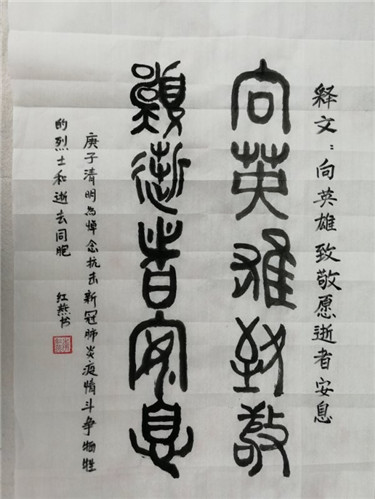 释文：向英雄致敬愿逝者安息
向英雄致敬
願逝者安息
庚子清明为悼念抗击新冠肺炎疫情斗争牺牲
的烈士和逝去同胞
红燕书